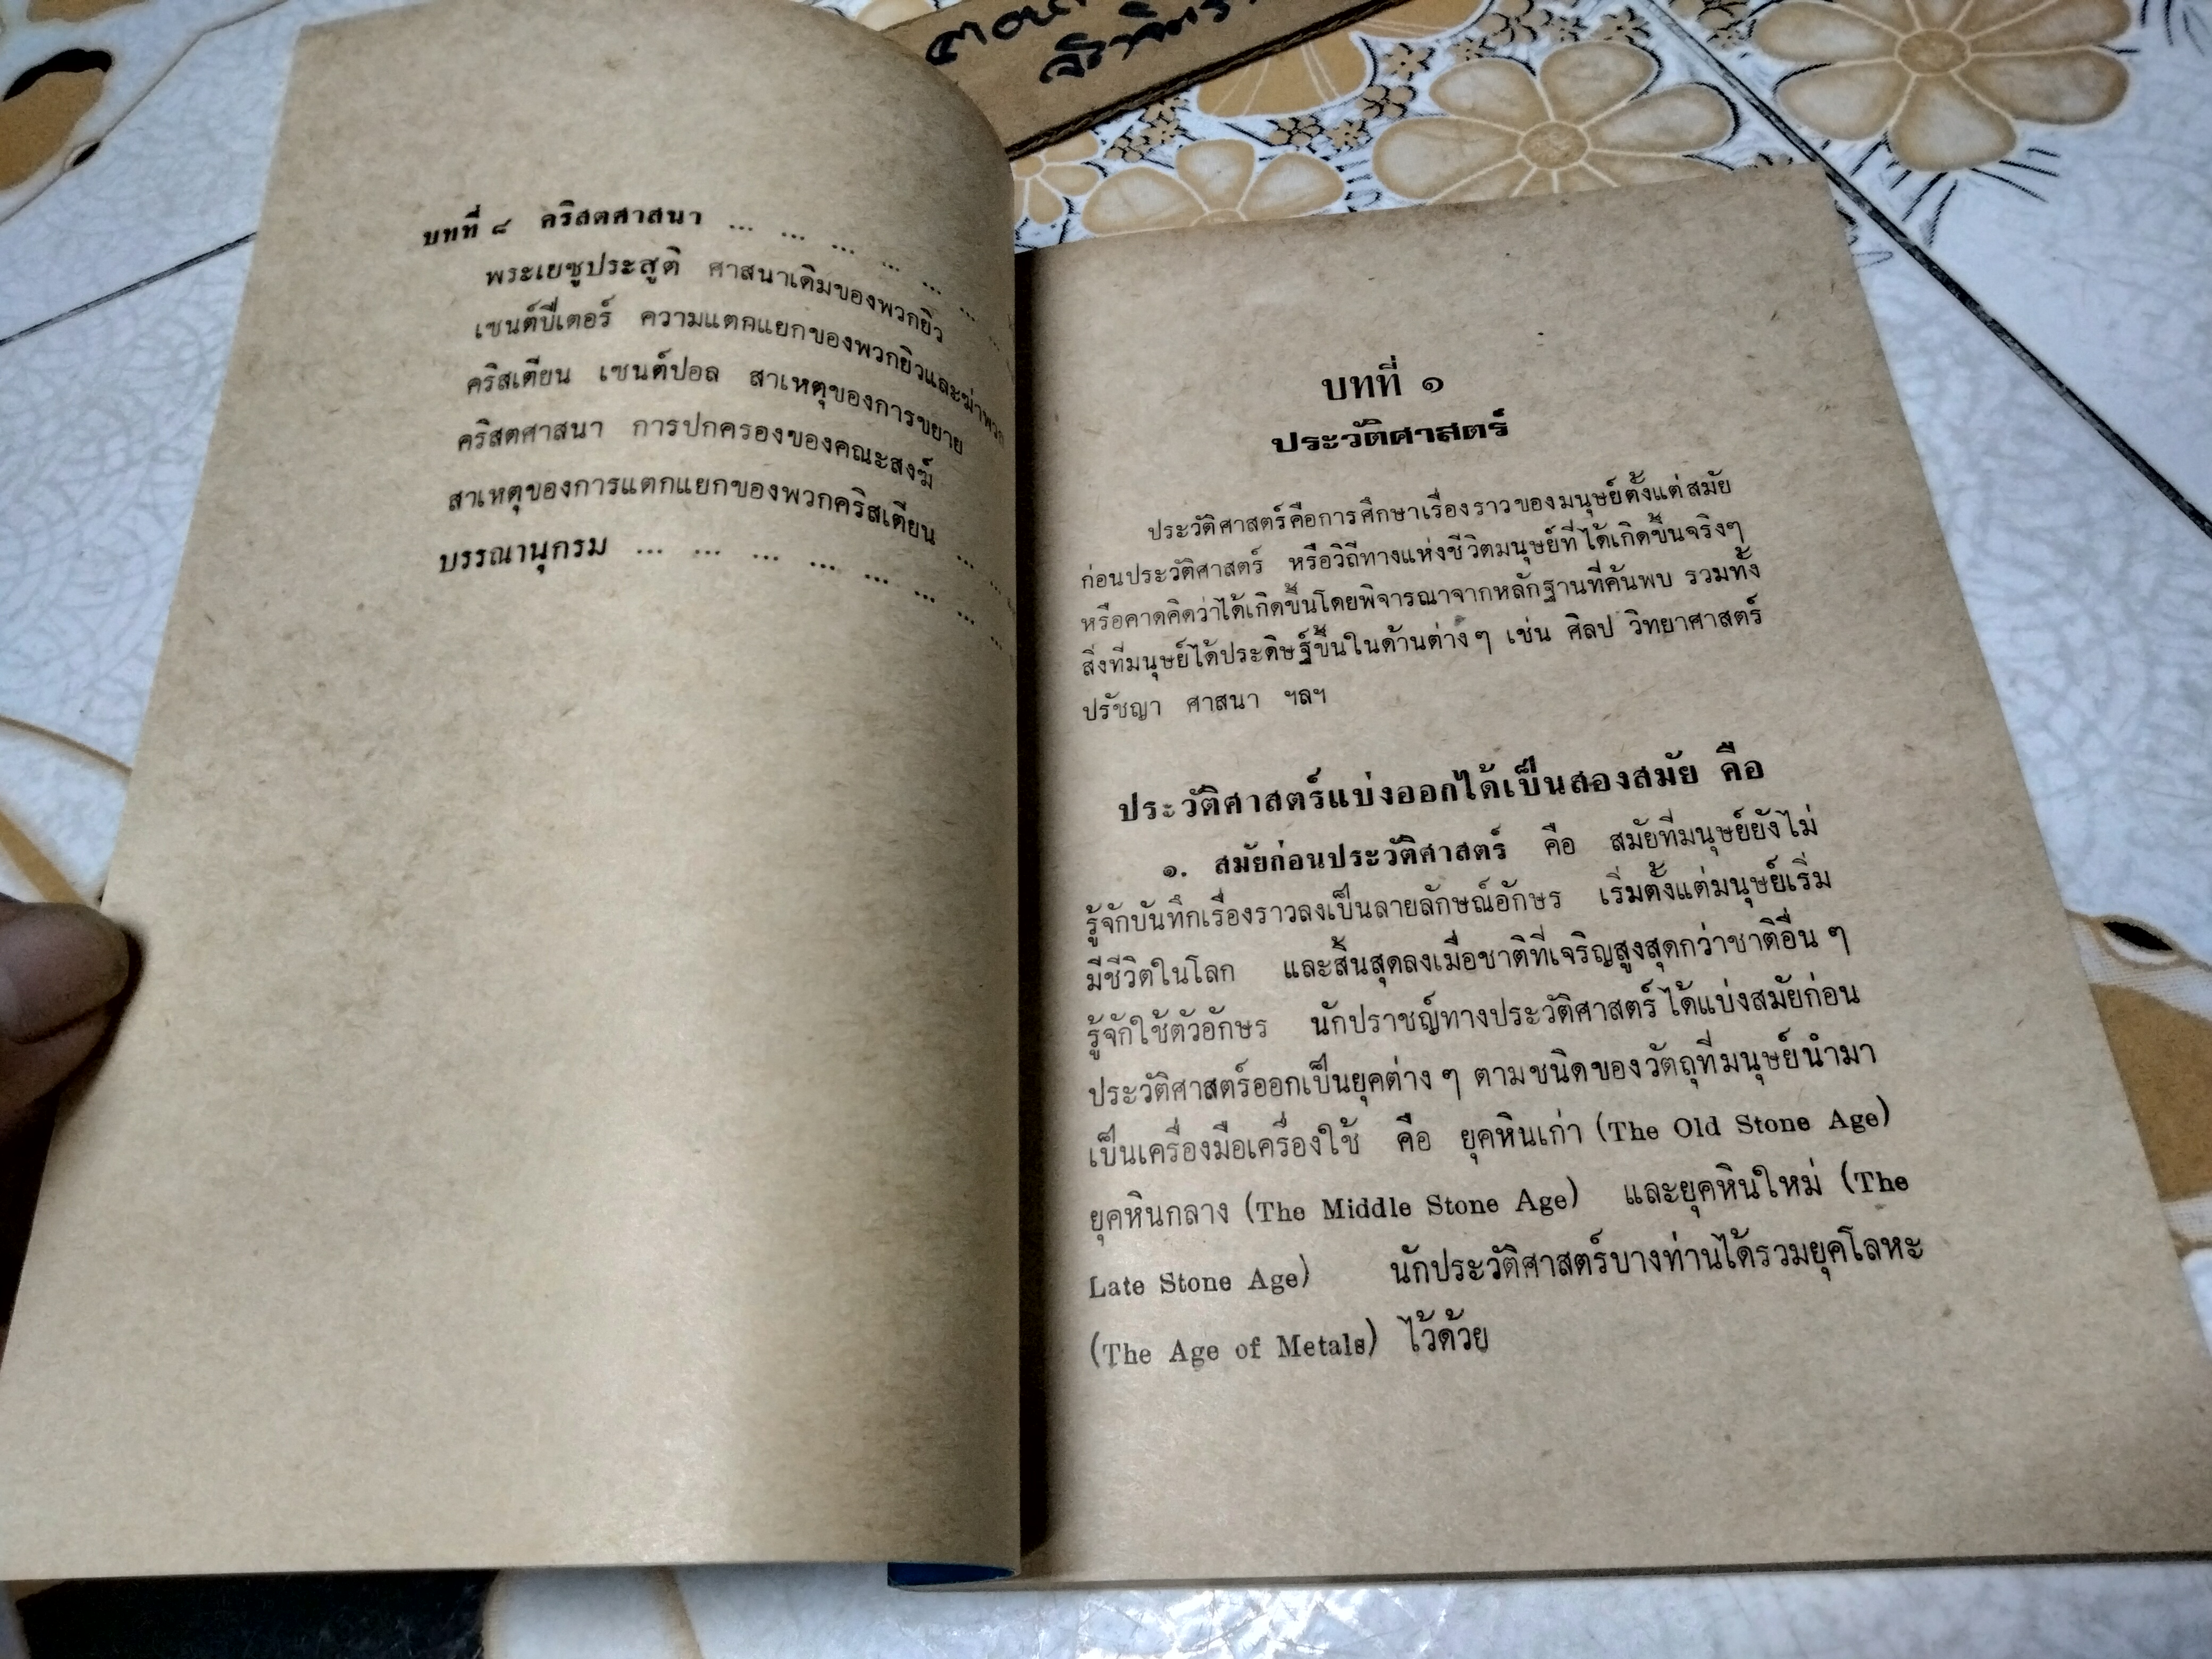 บทที่ ๘ คริสตศาสนา ... ... ... ... ... ... ...
พระเยซูประสูติ ศาสนาเดิมของพวกยิว
เซนต์ปีเตอร์ ความแตกแยกของพวกยิวและฆ่าพวก
คริสเตียน เซนต์ปอล สาเหตุของการขยาย
คริสตศาสนา การปกครองของคณะสงฆ์
สาเหตุของการแตกแยกของพวกคริสเตียน ... ...
บรรณานุกรม ... ... ... ... ... ... ... ...
บทที่ ๑
ประวัติศาสตร์
ประวัติศาสตร์คือการศึกษาเรื่องราวของมนุษย์ตั้งแต่สมัย
ก่อนประวัติศาสตร์ หรือวิถีทางแห่งชีวิตมนุษย์ที่ได้เกิดขึ้นจริงๆ
หรือคาดคิดว่าได้เกิดขึ้นโดยพิจารณาจากหลักฐานที่ค้นพบ รวมทั้ง
สิ่งที่มนุษย์ได้ประดิษฐ์ขึ้นในด้านต่างๆ เช่น ศิลป วิทยาศาสตร์
ปรัชญา ศาสนา ฯลฯ
ประวัติศาสตร์แบ่งออกได้เป็นสองสมัย คือ
๑. สมัยก่อนประวัติศาสตร์ คือ สมัยที่มนุษย์ยังไม่
รู้จักบันทึกเรื่องราวลงเป็นลายลักษณ์อักษร เริ่มตั้งแต่มนุษย์เริ่ม
มีชีวิตในโลก และสิ้นสุดลงเมื่อชาติที่เจริญสูงสุดกว่าชาติอื่น ๆ
รู้จักใช้ตัวอักษร นักปราชญ์ทางประวัติศาสตร์ได้แบ่งสมัยก่อน
ประวัติศาสตร์ออกเป็นยุคต่าง ๆ ตามชนิดของวัตถุที่มนุษย์นำมา
เป็นเครื่องมือเครื่องใช้ คือ ยุคหินเก่า (The Old Stone Age)
ยุคหินกลาง (The Middle Stone Age) และยุคหินใหม่ (The
Late Stone Age) นักประวัติศาสตร์บางท่านได้รวมยุคโลหะ
(The Age of Metals) ไว้ด้วย